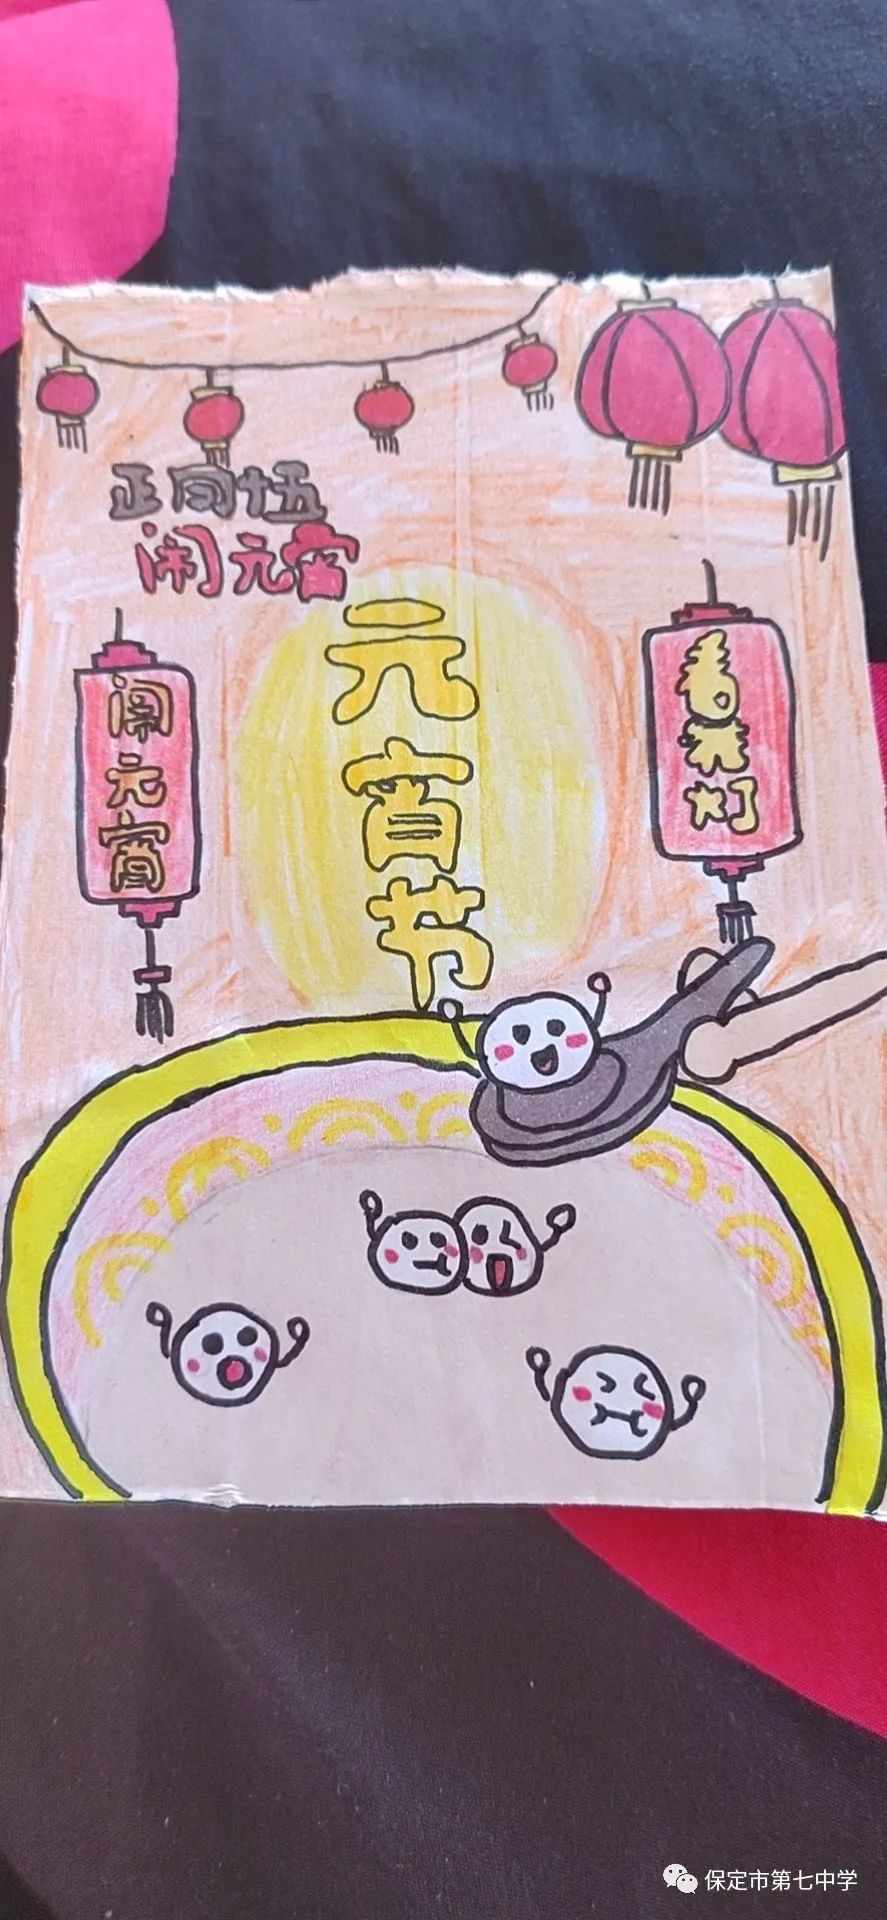 正月十五
闹元宵
元宵节
闹元宵
看花灯
保定市第七中学